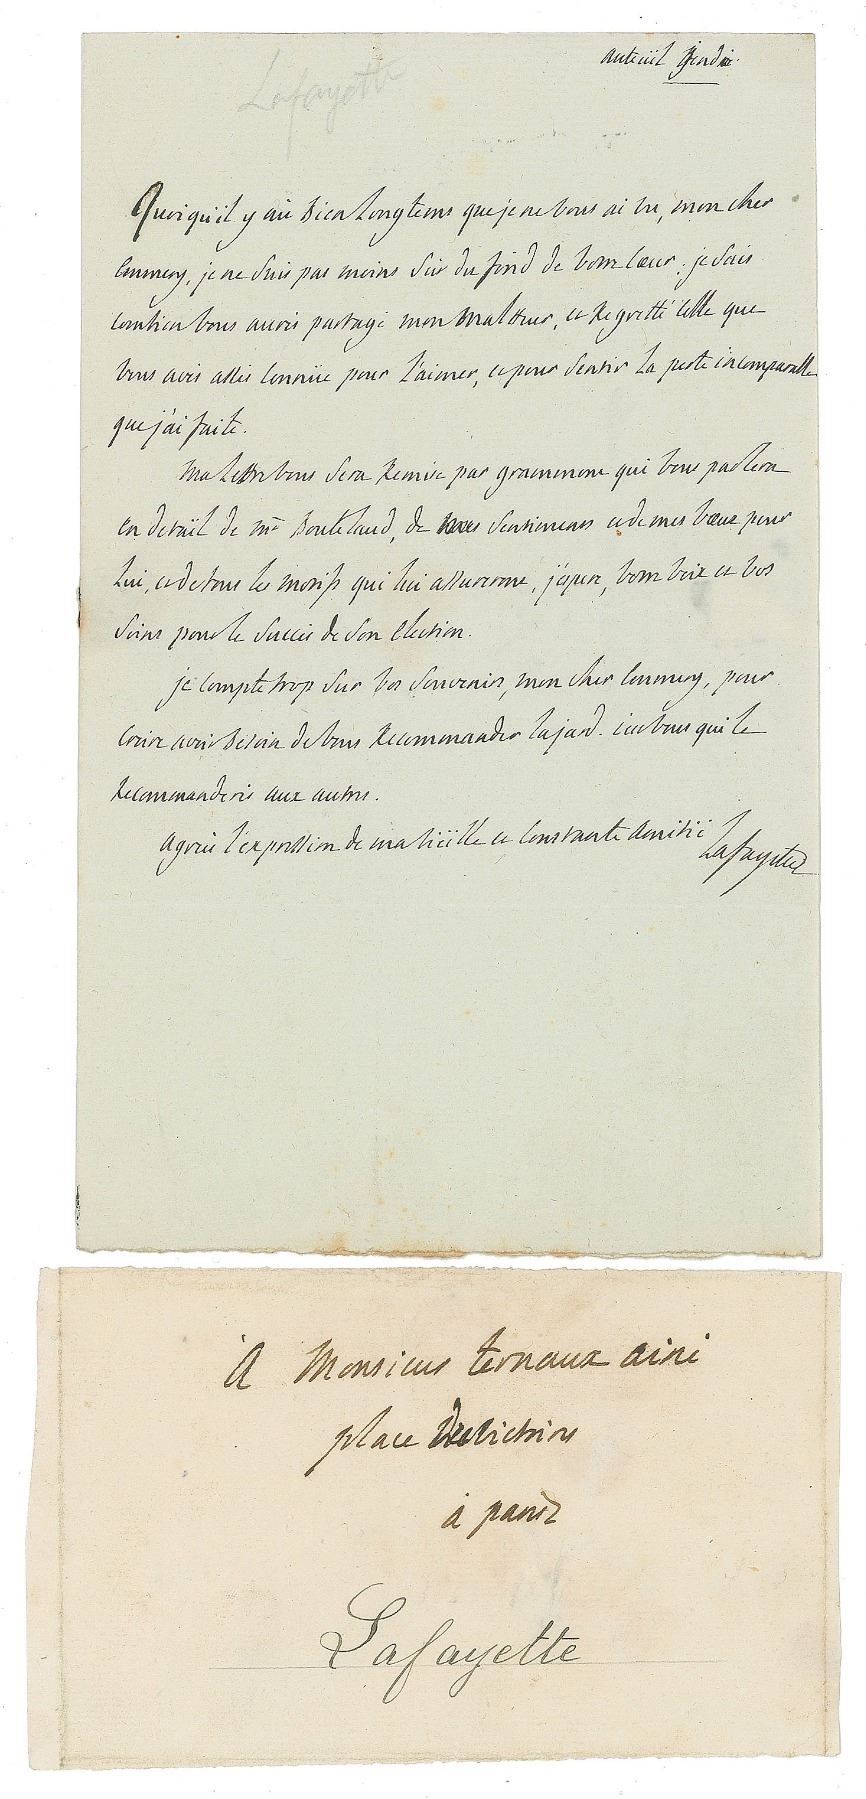 auteüil jeudi
Lafayette
Quoiqu'il y ait Bien Longtems que je ne vous ai vu, mon cher
Emmery, je ne suis pas moins sûr du fond de votre Cœur; je sais
combien vous aurés partagé mon malheur, et Regretté Celle que
vous aviés assés Connüe pour L'aimer, et pour sentir La perte incomparable
que j'ai faite.
Ma Lettre vous sera Remise par grammont qui vous parlera
en detail de mr de mes sentimens et de mes vœux pour
Lui, et de tous les motifs qui lui assureront, j'espere, votre voix et vos
soins pour le succès de son Election.
je compte trop sur vos souvenirs, mon cher Emmery, pour
croire avoir Besoin de vous Recommander Lajard. c'est vous qui le
Recommanderés aux autres.
agréés l'expression de ma vieille et Constante amitié
Lafayette
A Monsieur ternaux ainé
place des victoires
à paris
Lafayette